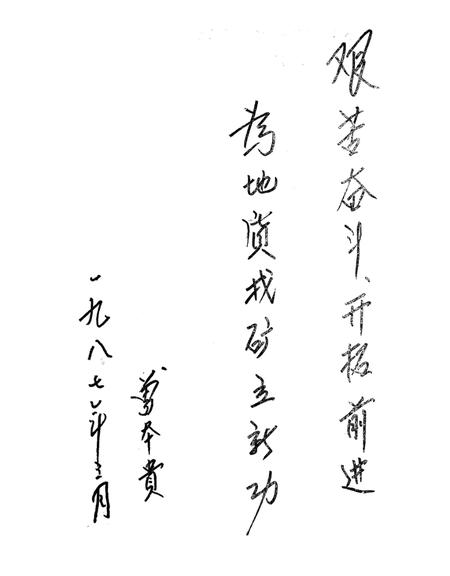 艰苦奋斗、开拓前进
为地质找矿立新功
本贵
一九八七年三月